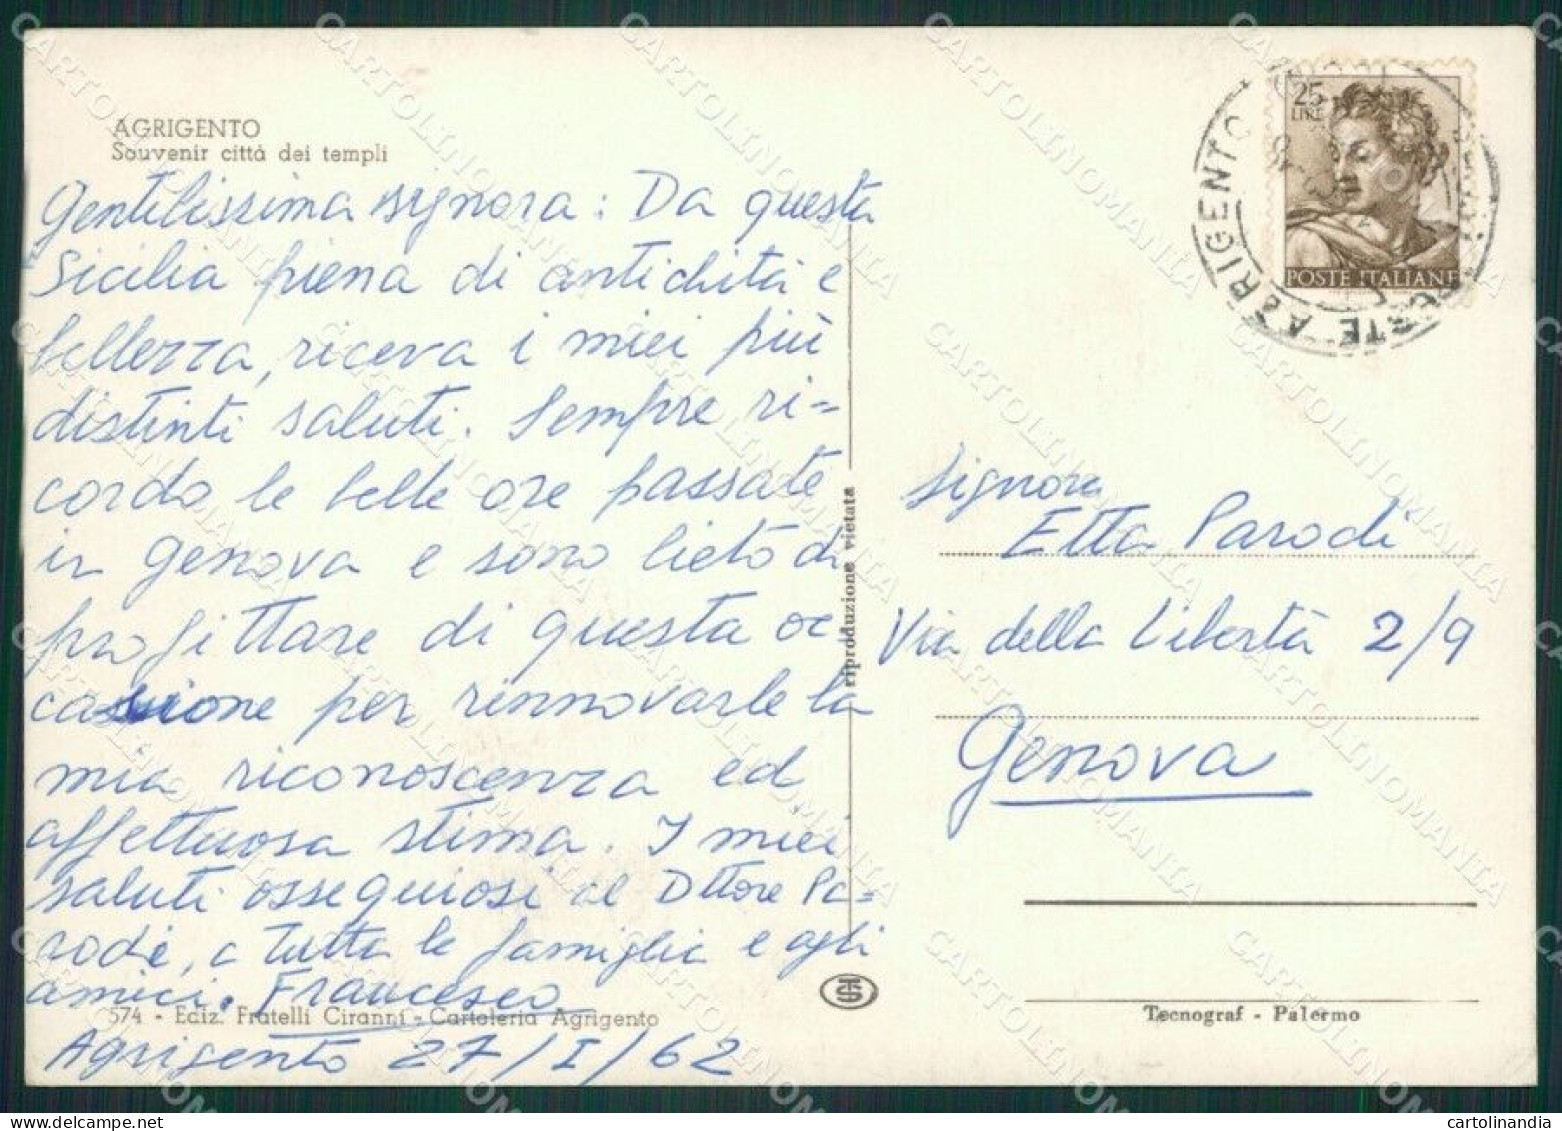 AGRIGENTO
Souvenir cittá dei templi
Gentilissima signora: Da questa
Sicilia piena di antichità e
bellezza, riceva i miei più
distinti saluti. Sempre ri=
cordo le belle ore passate
in Genova e sono lieto di
profittare di questa oc
casione per rinnovarle la
mia riconoscenza ed
affettuosa stima. I miei
saluti ossequiosi al Dttore Pa=
rodi, a tutta la famiglia e agli
amici. Francesco
574 - Ediz. Fratelli Ciranni - Cartoleria Agrigento
Agrigento 27/I/62
riproduzione vietata
25
LIRE
POSTE ITALIANE
AGRIGENTO
Signora
Etta Parodi
Via della Libertà 2/9
Genova
Tecnograf - Palermo
CARTOLINOMANIA
cartolinandia